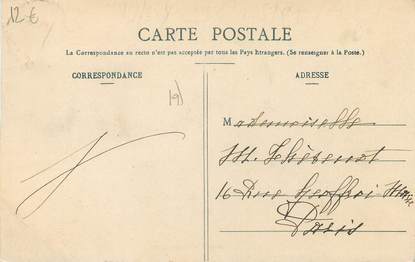 12 €
CARTE POSTALE
La Correspondance au recto n'est pas acceptée par tous les Pays Etrangers. (Se renseigner à la Poste.)
CORRESPONDANCE
ADRESSE
19
Mademoiselle
M. Thévenot
16 Rue Geoffroi
Paris